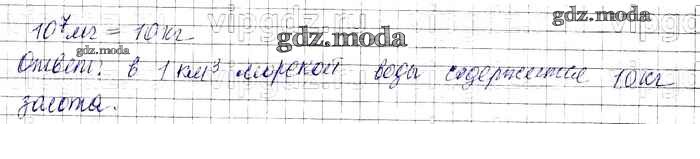 vipgdz.ru
10⁷ мг = 10 кг
gdz.moda
gdz.moda
Ответ: в 1 км³ морской воды содержится 10 кг
золота.
gdz.moda
vipgdz.ru